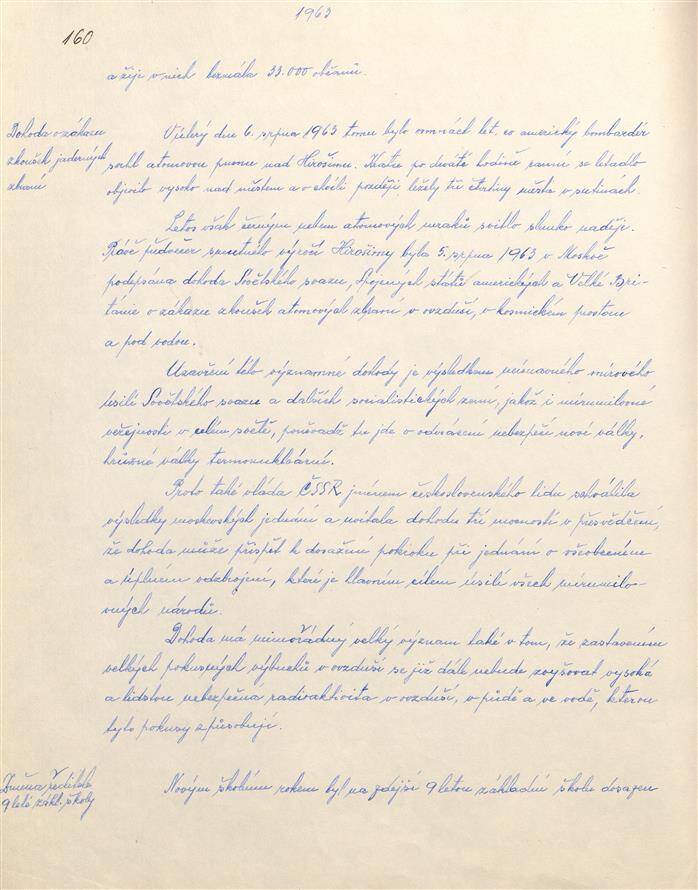 1963
160
a žije v nich bezmála 33.000 občanů.
Dohoda o zákazu
zkoušek jaderných
zbraní
V úterý dne 6. srpna 1963 tomu bylo osmnáct let, co americký bombardér
svrhl atomovou pumu nad Hirošimu. Krátce po deváté hodině ranní se letadlo
objevilo vysoko nad městem a o chvíli později ležely tři čtvrtiny města v sutinách.
Letos však černým nebem atomových mraků svitlo slunko naděje.
Právě předvečer smutného výročí Hirošimy byla 5. srpna 1963 v Moskvě
podepsána dohoda Sovětského svazu, Spojených států amerických a Velké Bri-
tánie o zákazu zkoušek atomových zbraní v ovzduší, v kosmickém prostoru
a pod vodou.
Uzavření této významné dohody je výsledkem neúnavného mírového
úsilí Sovětského svazu a dalších socialistických zemí, jakož i mírumilovné
veřejnosti v celém světě, poněvadž tu jde o odvrácení nebezpečí nové války,
hrůzné války termonukleární.
Proto také vláda ČSSR jménem československého lidu schválila
výsledky moskevských jednání a uvítala dohodu tří mocností v přesvědčení,
že dohoda může přispět k dosažení pokroku při jednání o všeobecném
a úplném odzbrojení, které je hlavním cílem úsilí všech mírumilo-
vných národů.
Dohoda má mimořádný velký význam také v tom, že zastavením
velkých pokusných výbuchů v ovzduší se již dále nebude zvyšovat vysoká
a lidstvu nebezpečná radioaktivita v ovzduší, v půdě a ve vodě, kterou
tyto pokusy způsobují.
Změna ředitele
9 leté zákl. školy
Novým školním rokem byl na zdejší 9 letou základní školu dosazen